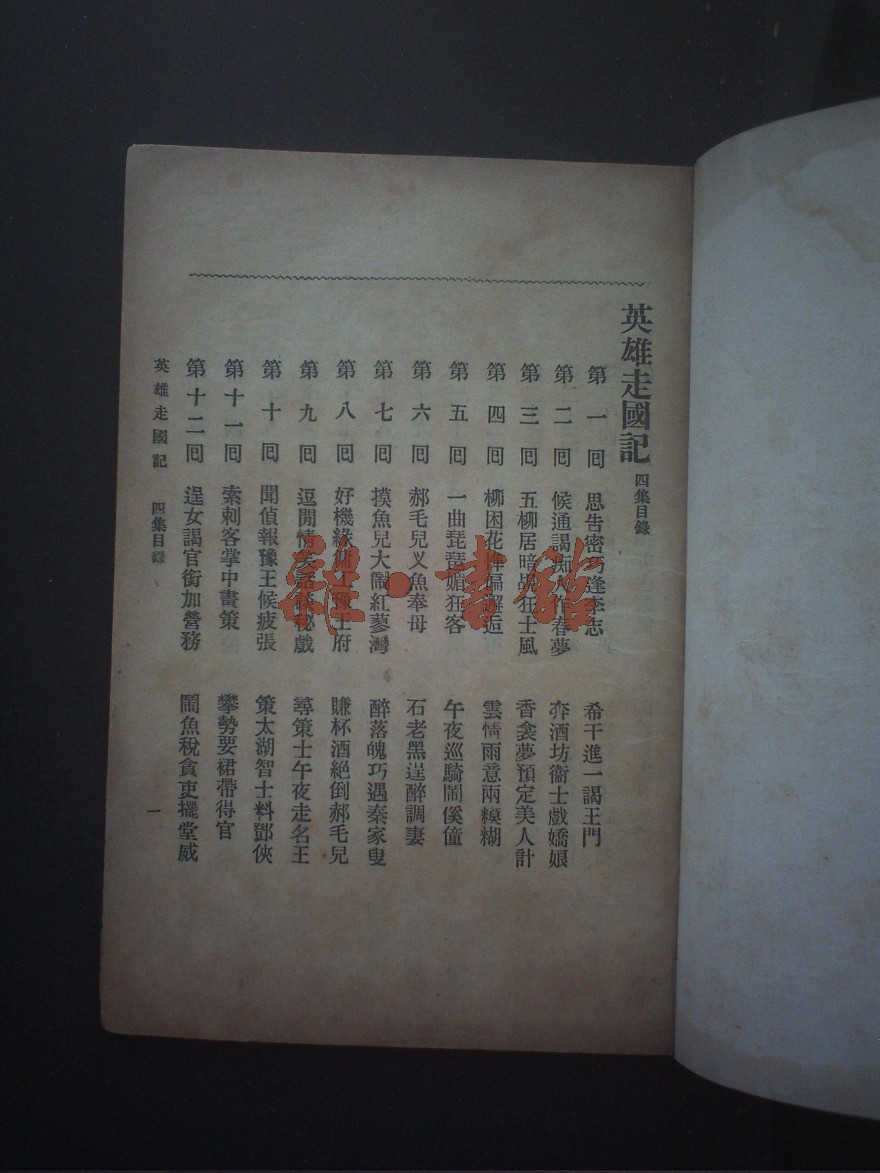 英雄走國記 四集目錄
第一回 思告密巧逢李志 希干進一謁王門
第二回 候通謁痴人作春夢 奔酒坊衞士戲嬌娘
第三回 五柳居暗 狂士風 香衾夢預定美人計
第四回 柳困花 隔邂逅 雲情雨意兩糢糊
第五回 一曲琵琶媚狂客 午夜巡騎鬧傒僮
第六回 郝毛兒义魚奉母 石老黑逞醉調妻
第七回 摸魚兒大鬧紅蓼灣 醉落魄巧遇秦家叟
第八回 好機緣 王府 賺杯酒絕倒郝毛兒
第九回 逗閒情笑話談秘戲 尋策士午夜走名王
第十回 聞偵報豫王候疲張 策太湖智士料鄧俠
第十一回 索刺客掌中畫策 攀勢要裙帶得官
第十二回 逞女謁官銜加營務 鬧魚稅貪吏擺堂威
英雄走國記 四集目錄
一
雜·書館